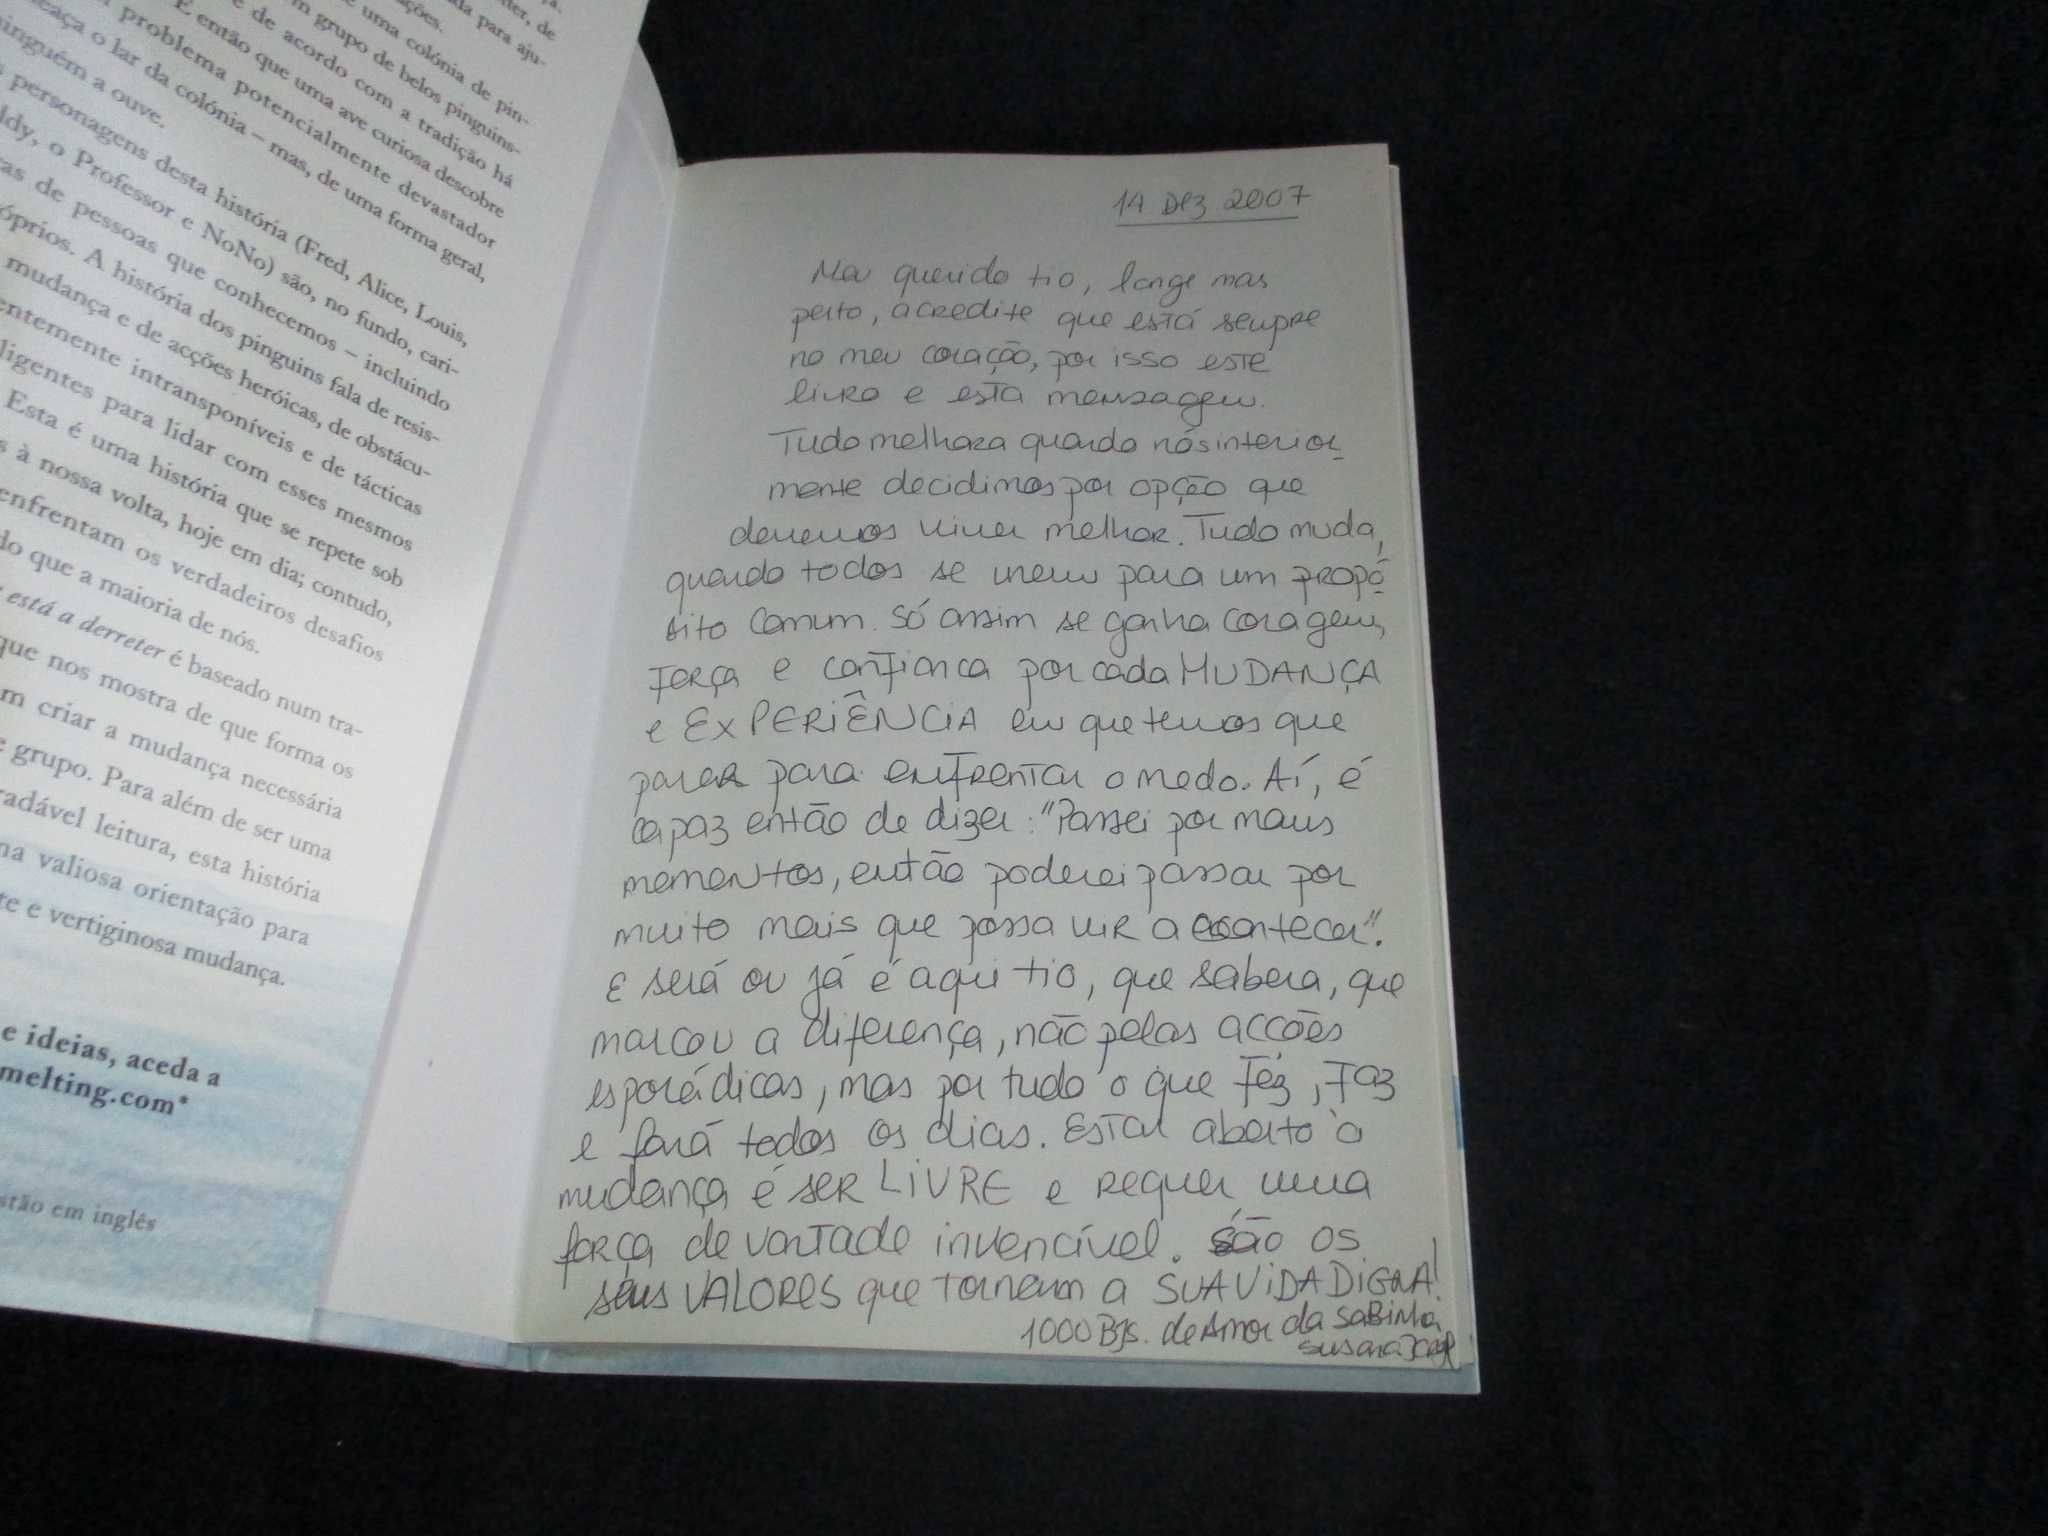 ter, de
ada para aju-
ações.
e uma colónia de pin-
m grupo de belos pinguins-
e de acordo com a tradição há
E então que uma ave curiosa descobre
problema potencialmente devastador
eaça o lar da colónia – mas, de uma forma geral,
inguém a ouve.
personagens desta história (Fred, Alice, Louis,
ddy, o Professor e NoNo) são, no fundo, cari-
as de pessoas que conhecemos – incluindo
óprios. A história dos pinguins fala de resis-
mudança e de acções heróicas, de obstácu-
entemente intransponíveis e de tácticas
ligentes para lidar com esses mesmos
Esta é uma história que se repete sob
s à nossa volta, hoje em dia; contudo,
enfrentam os verdadeiros desafios
do que a maioria de nós.
está a derreter é baseado num tra-
que nos mostra de que forma os
m criar a mudança necessária
e grupo. Para além de ser uma
radável leitura, esta história
na valiosa orientação para
te e vertiginosa mudança.
e ideias, aceda a
melting.com*
stão em inglês
14 Dez 2007
Meu querido tio, longe mas
perto, acredite que está sempre
no meu coração, por isso este
livro e esta mensagem.
Tudo melhora quando nós interior-
mente decidimos por opção que
devemos viver melhor. Tudo muda,
quando todos se unem para um propó-
sito comum. Só assim se ganha coragem,
força e confiança por cada MUDANÇA
e EXPERIÊNCIA em que temos que
parar para enfrentar o medo. Aí, é
capaz então de dizer: "Passei por maus
momentos, então poderei passar por
muito mais que possa vir a acontecer".
E será ou já é aqui tio, que sabera, que
marcou a diferença, não pelas acções
esporádicas, mas por tudo o que fez, faz
e fará todos os dias. Estar aberto à
mudança é ser LIVRE e requer uma
força de vontade invencível. São os
seus VALORES que tornam a SUA VIDA DIGNA!
1000 Bjs. de Amor da Sobinha
Susana